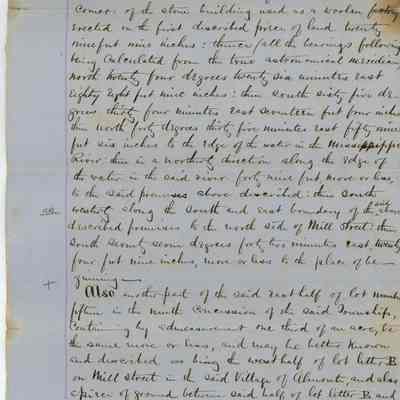 corner of the stone building used as a woolen factory
erected on the first described piece of land twenty
nine feet nine inches: thence (all the bearings following
being calculated from the true astronomical meridian,
north twenty four degrees twenty six minutes east
eighty eight feet nine inches: then south sixty five de-
grees thirty four minutes east seventeen feet four inches
then north forty degrees thirty five minutes east fifty nine
feet six inches to the edge of the water in the Mississippi
River: then in a northerly direction along the edge of
the water in the said river forty nine feet more or less,
to the said premises above described: then south
westerly along the south and east boundary of the said above
described premises to the north side of Mill Street: then
South seventy seven degrees forty two minutes east, twenty
four feet nine inches, more or less to the place of be-
ginning—
Also another part of the said east half of lot number
fifteen in the ninth Concession of the said Township,
Containing by admeasurement one third of an acre, be
the same more or less, and may be better known
and described as being the west half of lot letter B
on Mill Street in the said Village of Almonte, and also
a piece of ground between said half of lot letter B and